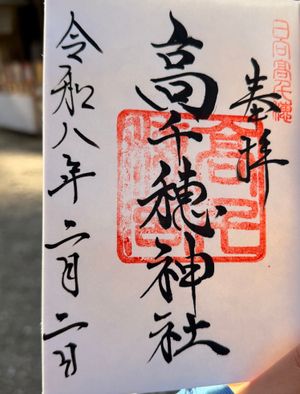 奉拝
高千穂神社
令和八年二月二日